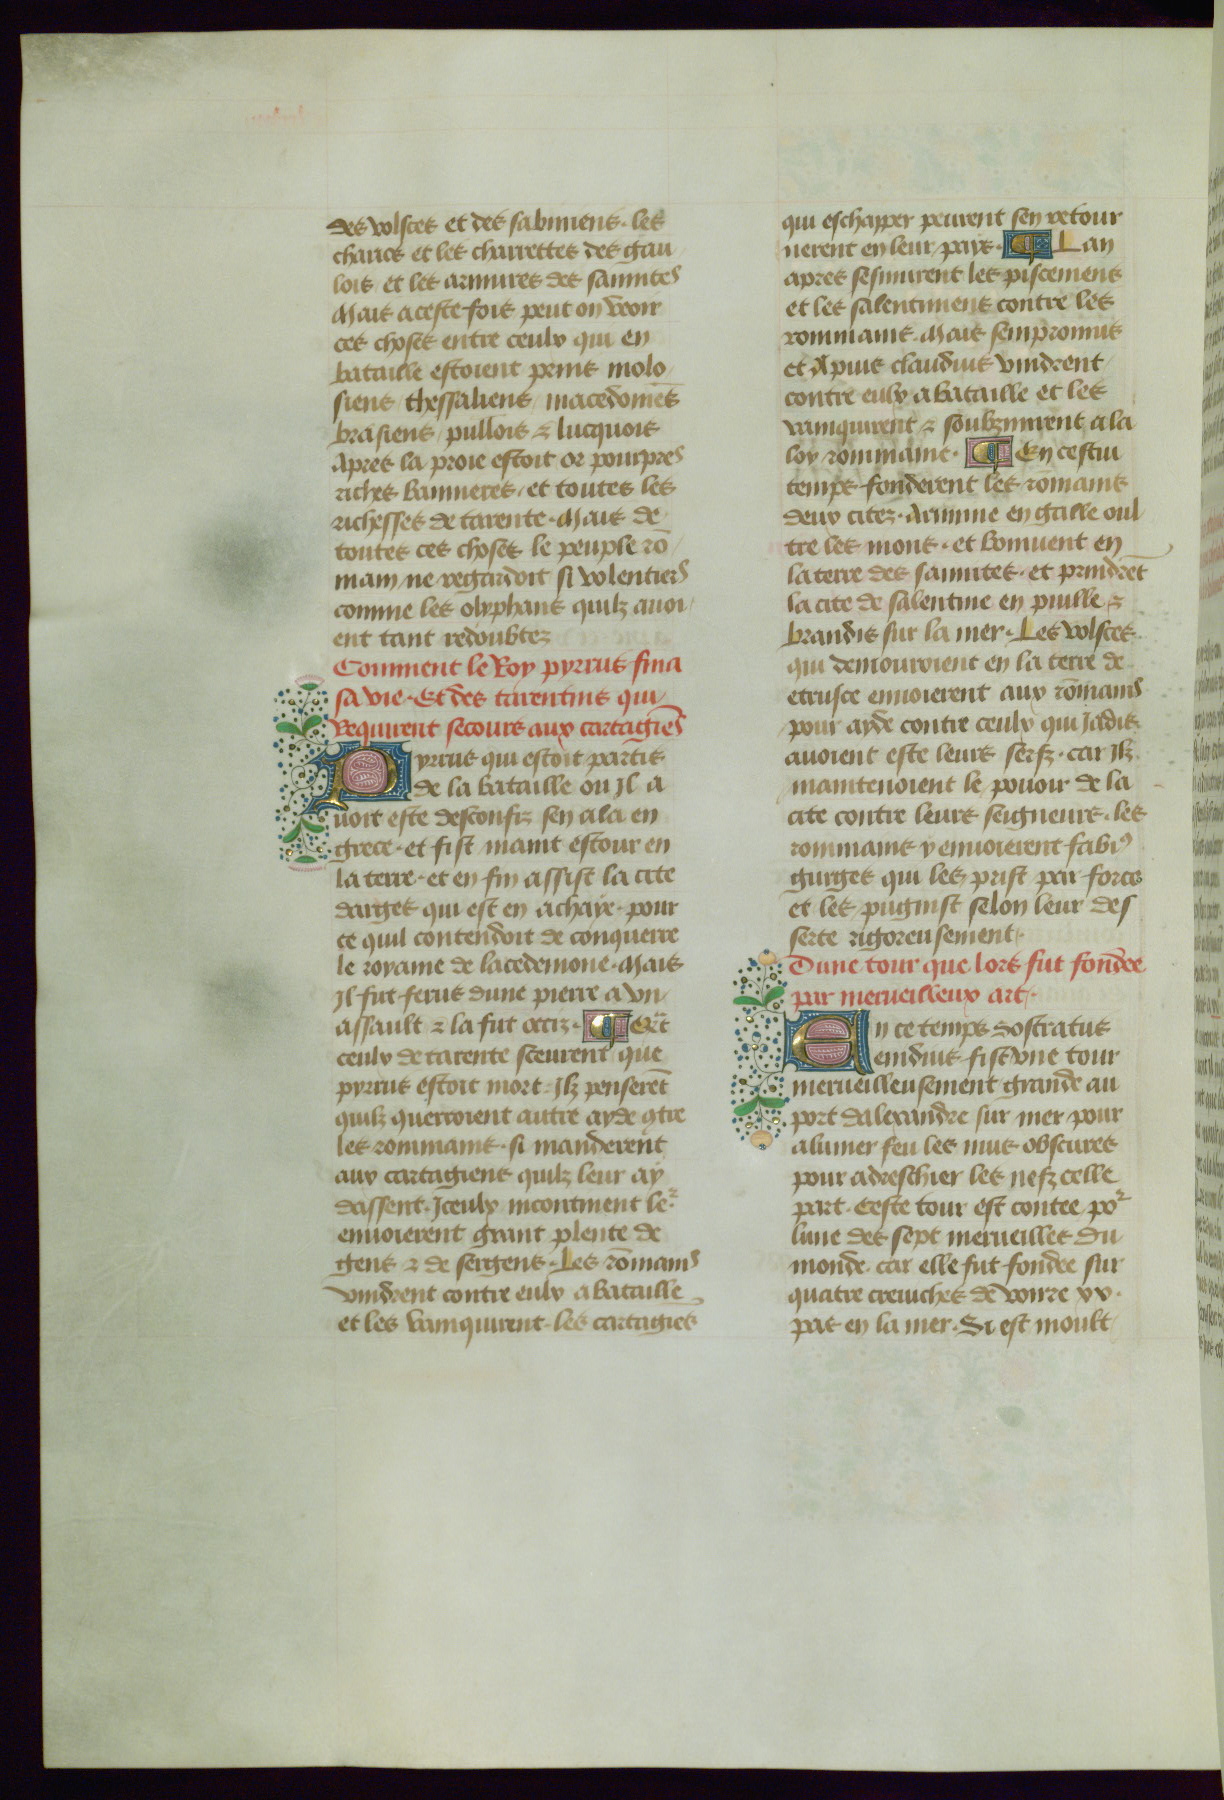 des volsces et des sabiniens. les
chars et les charrettes des gau
lois et les armures des sannites
Mais a ceste fois peut on veoir
ces choses entre ceulx qui en
bataille estoient prins molo
siens / thessaliens / macedoniẽs
brasiens / pullois ⁊ lucquois
Apres la proie estoit or pourpres
riches bannieres / et toutes les
richesses de tarente. Mais de
toutes ces choses le peuple rõ
main ne regardoit si volentiers
comme les olyphans quilz auoi
ent tant redoubtez
Comment le Roy pyrrus fina
sa vie. Et des tarentins qui
Requirent secours aux cartagiẽs
Pyrrus qui estoit partis
de la bataille ou Jl a
uoit este desconfiz sen ala en
grece. et fist maint estour en
la terre. et en fin assist la cite
darges qui est en achaye. pour
ce quil contendoit de conquerre
le royame de lacedemone. Mais
Jl fut ferus dune pierre a vn
assault ⁊ la fut occiz. Et
ceulx de tarente sceurent que
pyrrus estoit mort. Jlz penserẽt
quilz querroient autre ayde ꝯtre
les rommains. si manderent
aux cartagiens quilz leur ay
dassent. Jceulx incontinent le²
enuoierent grant plente de
gens ⁊ de sergens. Les rõmains
vindrent contre eulx a bataille
et les vainquirent. les cartagiẽs
qui eschapper peurent sen retour
nerent en leur pays. Lan
apres sesmurent les piscemens
et les salentiniens contre les
rommains. Mais sempronius
et Apius claudius vindrent
contre eulx a bataille et les
vainquirent ⁊ soubzmirent a la
loy rommaine. En cestui
temps fonderent les rõmains
deux citez. Arimine en galle oul
tre les mons. et bonivent en
la terre des sannites. et prindrẽt
la cite de salentine en puille ⁊
brandis sur la mer. Les volsces
qui demouroient en la terre de
etrusce enuoierent aux rõmains
pour ayde contre ceulx qui Jadis
auoient este leurs serfz. car Jlz
maintenoient le pouoir de la
cite contre leurs seigneurs. les
rommains y enuoierent fabiꝰ
gurges qui les prist par force
et les pugnist selon leur des
serte rigoreusement.
Dune tour que lors fut fondee
par merueilleux art.
En ce temps Sostratus
enidius fist vne tour
merueilleusement grande au
port dalexandre sur mer pour
alumer feu les nuis obscures
pour adreschier les nefz celle
part. Ceste tour est contee po²
lune des sept merueilles du
monde. car elle fut fondee sur
quatre creuiches de voirre xx.
pas en la mer. Si est moult